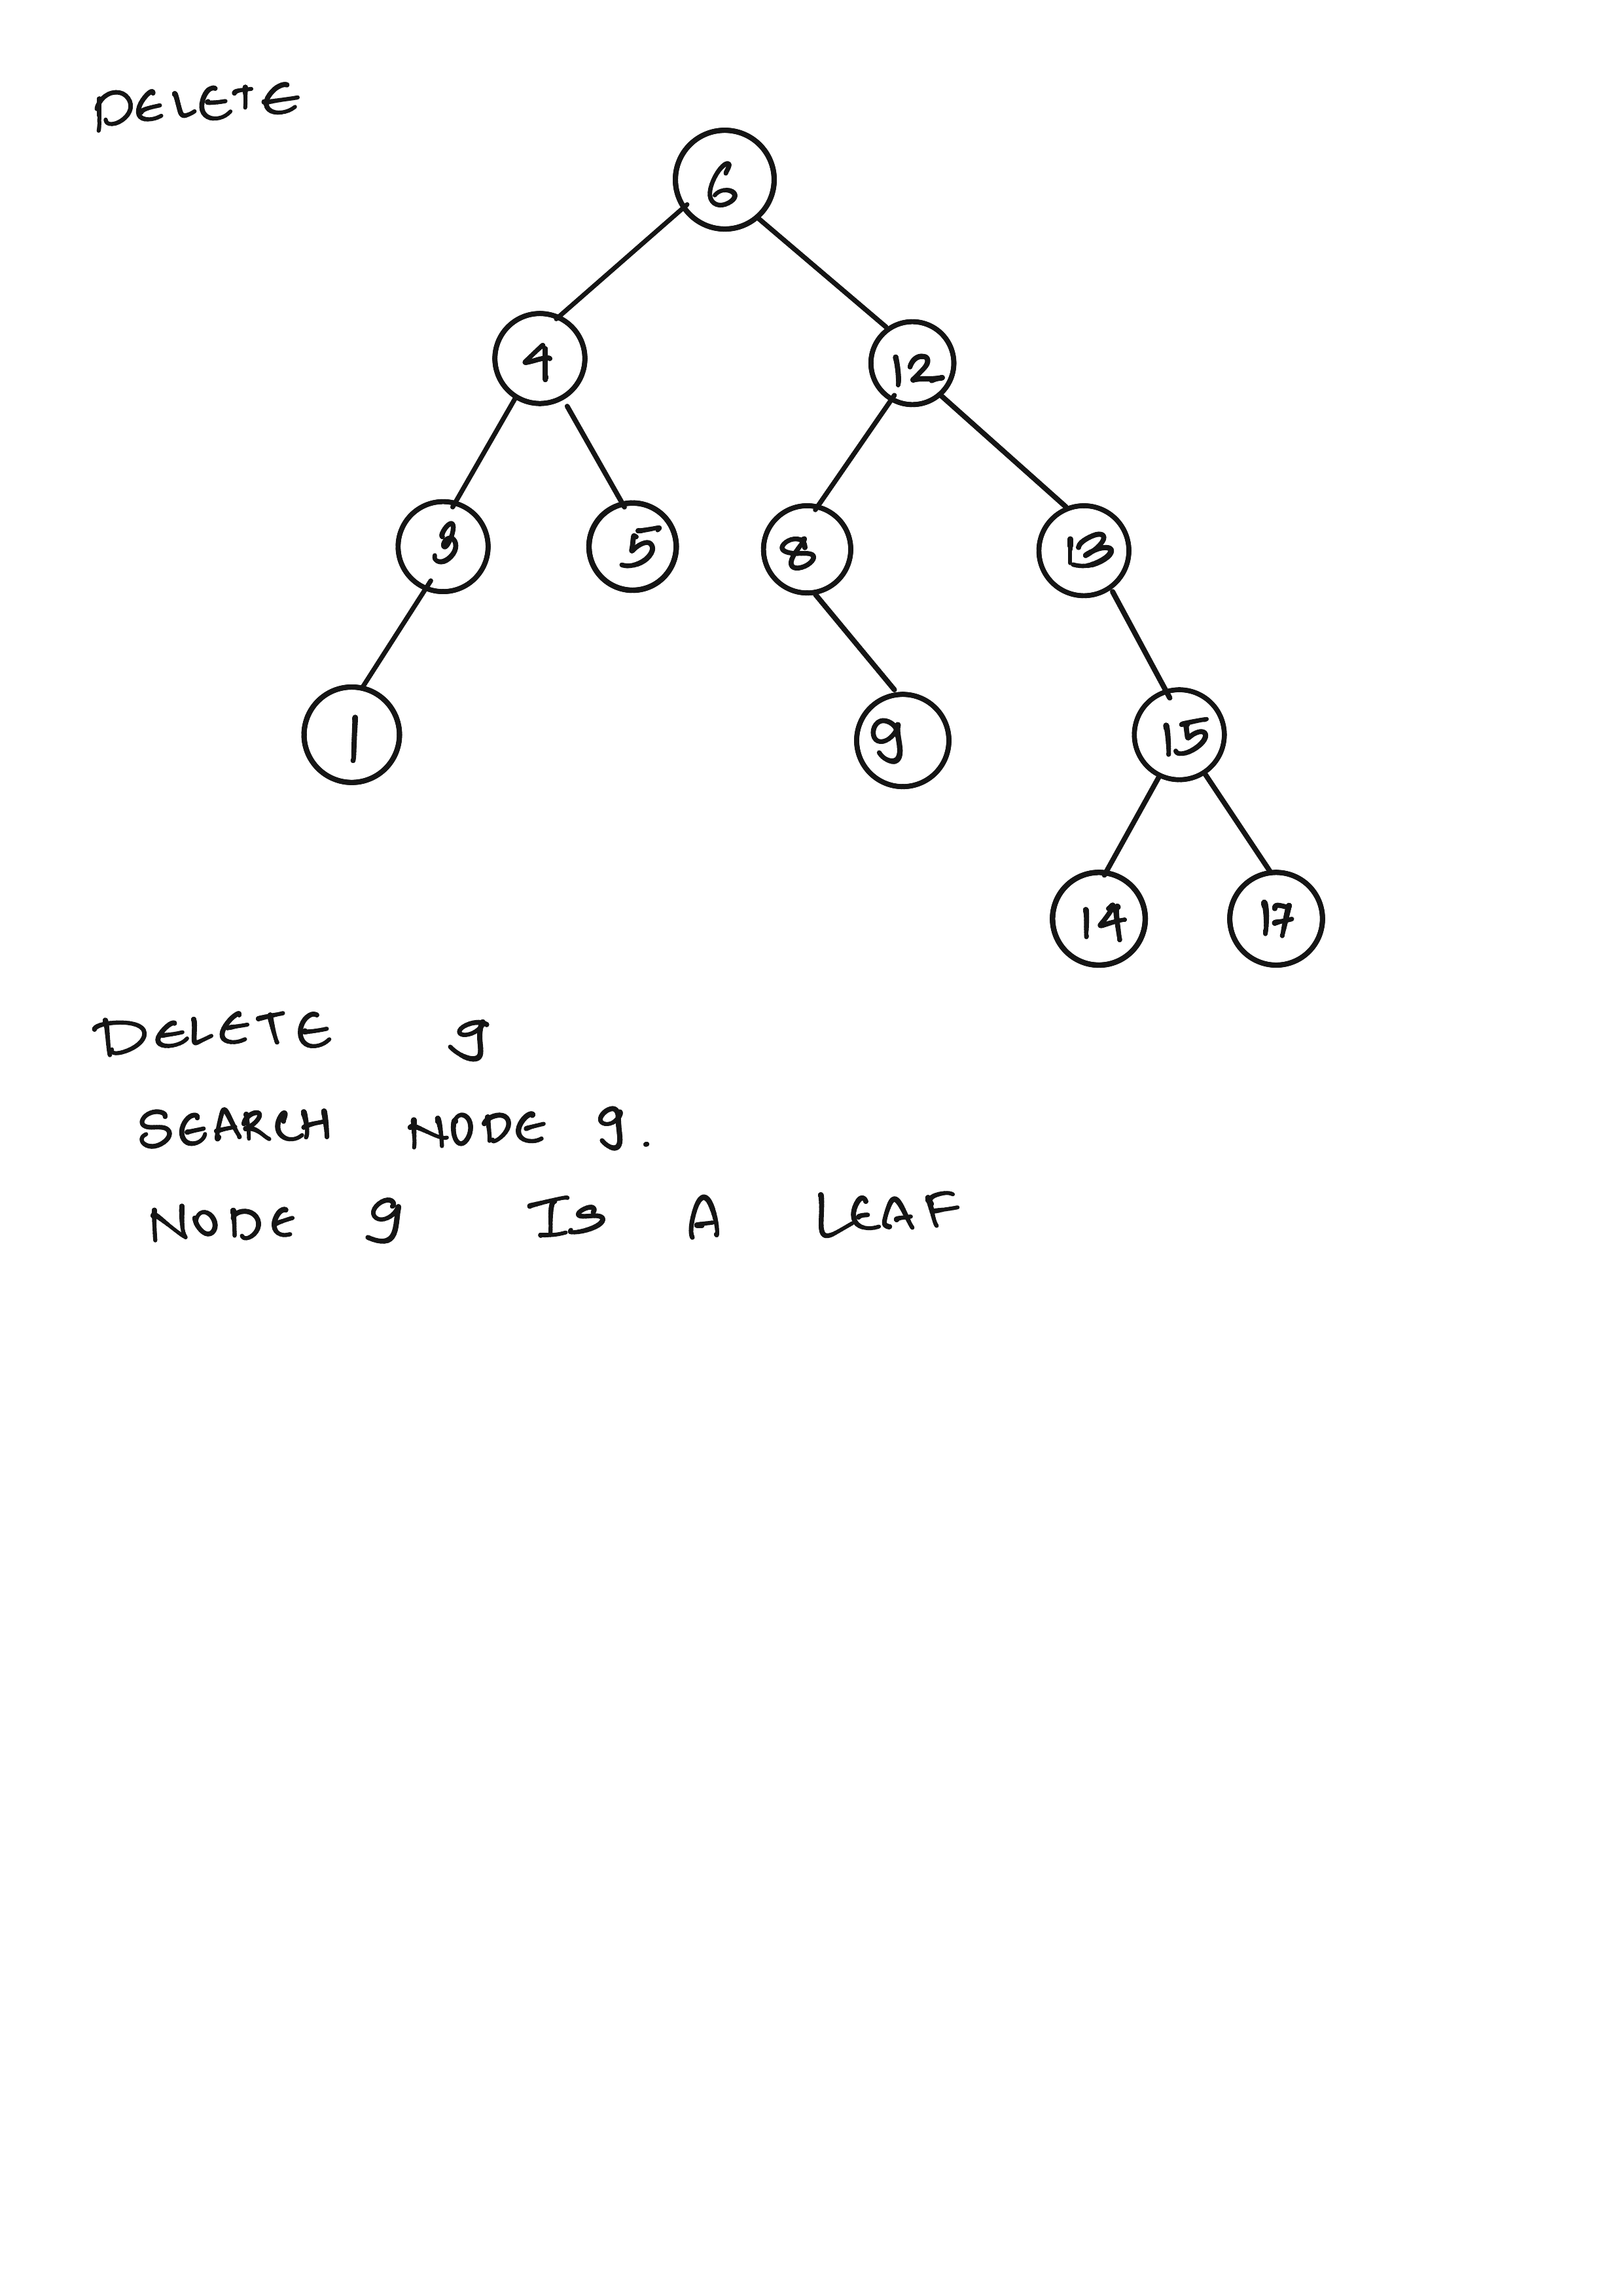 DELETE
6
4 12
3 5 8 13
1 9 15
14 17
DELETE 9
SEARCH NODE 9.
NODE 9 IS A LEAF